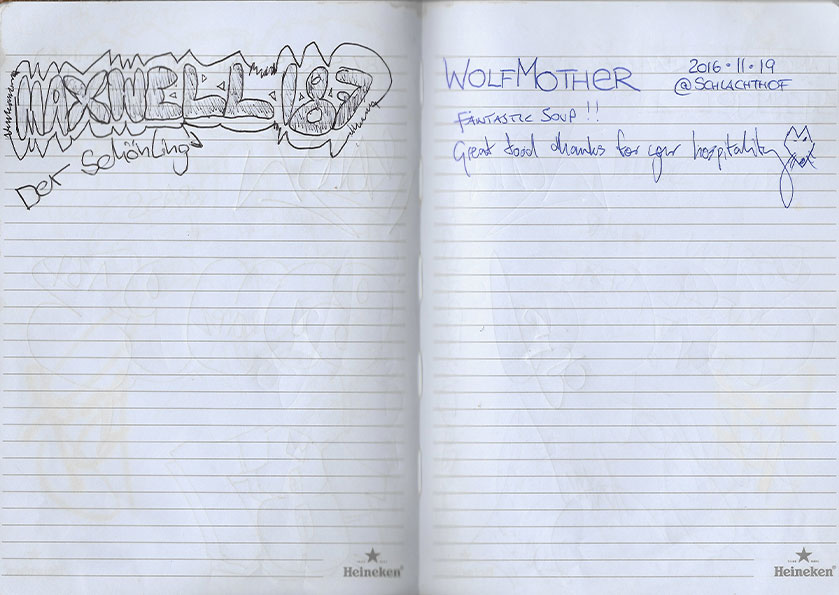 MAXWELL 187
Der Schönling
Heineken®
WOLFMOTHER
2016·11·19
@SCHLACHTHOF
FANTASTIC SOUP !!
Great food thanks for your hospitality
Heineken®